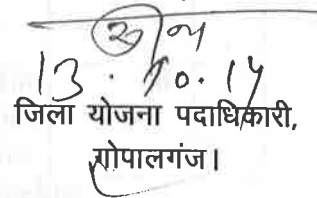 13.10.14
जिला योजना पदाधिकारी,
गोपालगंज।